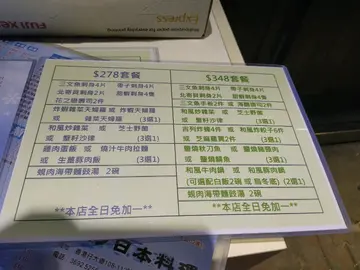 FUJI XEROX
Express
$278套餐
三文魚刺身4片 帶子刺身4片
北寄貝刺身2片 甜蝦刺身4隻
花之戀壽司2件
炸蝦雜菜天婦羅 或 炸蝦天婦羅
或 雜菜天婦羅 (3選1)
和風炒雜菜 或 芝士野菌
或 蟹籽沙律 (3選1)
雞肉蛋飯 或 燒汁牛肉拉麵
或 生薑豚肉飯 (3選1)
蜆肉海帶麵豉湯 2碗
**本店全日免加一**
$348套餐
三文魚刺身4片 帶子刺身4片
北寄貝刺身2片 甜蝦刺身4隻
三文魚手卷2件 或 海膽壽司2件
和風炒雜菜 或 芝士野菌
或 蟹籽沙律 (3選1)
吉列炸蠔4件 或 和風炸餃子6件
或 芝麻雞翼2件 (3選1)
鹽燒秋刀魚 或 鹽燒雞頸肉
或 鹽燒鯖魚 (3選1)
和風牛肉鍋 或 和風豚肉鍋
(可選配白飯2碗 或 烏冬底) (2選1)
蜆肉海帶麵豉湯 2碗
**本店全日免加一**
日本料理